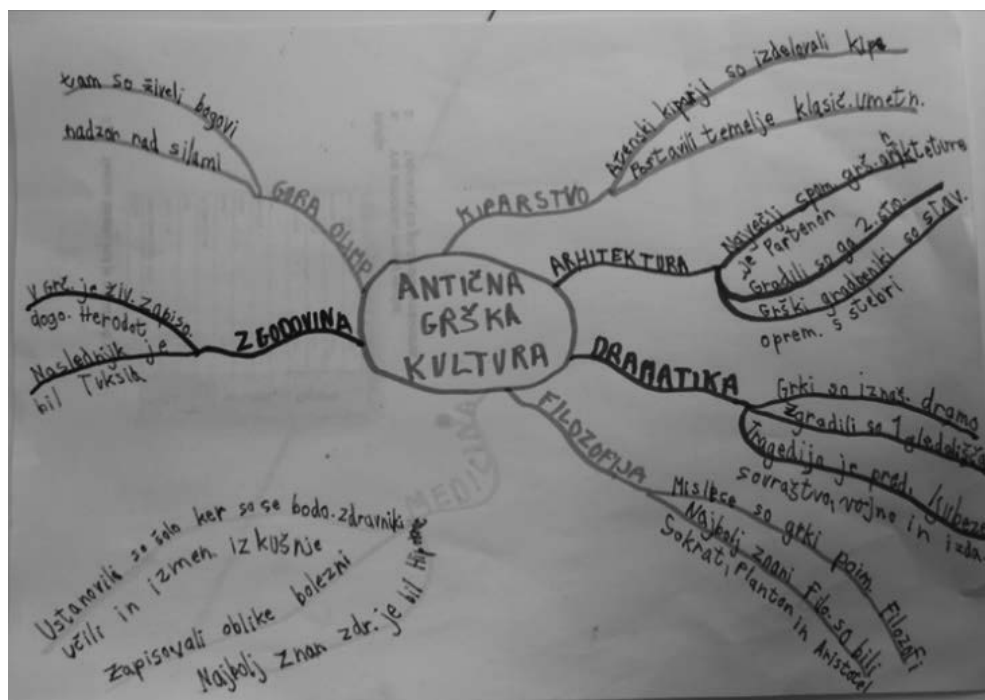 ANTIČNA
GRŠKA
KULTURA
GORA OLIMP
tam so živeli bogovi
nadzor nad silami
KIPARSTVO
Atenski kiparji so izdelovali kipe
Postavili temelje klasič. umetn.
ARHITEKTURA
Največji spom. grš.
je Partenon
Gradili so ga 2. sto.
Grški gradbeniki so stav.
oprem. s stebri
DRAMATIKA
Grki so iznaš. dramo
Zgradili so 1 gledališče
Tragedija je pred. ljubezen
sovraštvo, vojno in izda
FILOZOFIJA
Mislece so grki poim. Filozofi
Najbolj znani Filo. so bili
Sokrat, Planton in Aristotel
MEDICINA
Ustanovili so šolo ker so se bodo. zdravniki
učili in izmen. izkušnje
Zapisovali oblike bolezni
Najbolj znan zdr. je bil
ZGODOVINA
V Grč. je živ. zapiso.
dogo. Herodot
Naslednjik je
bil